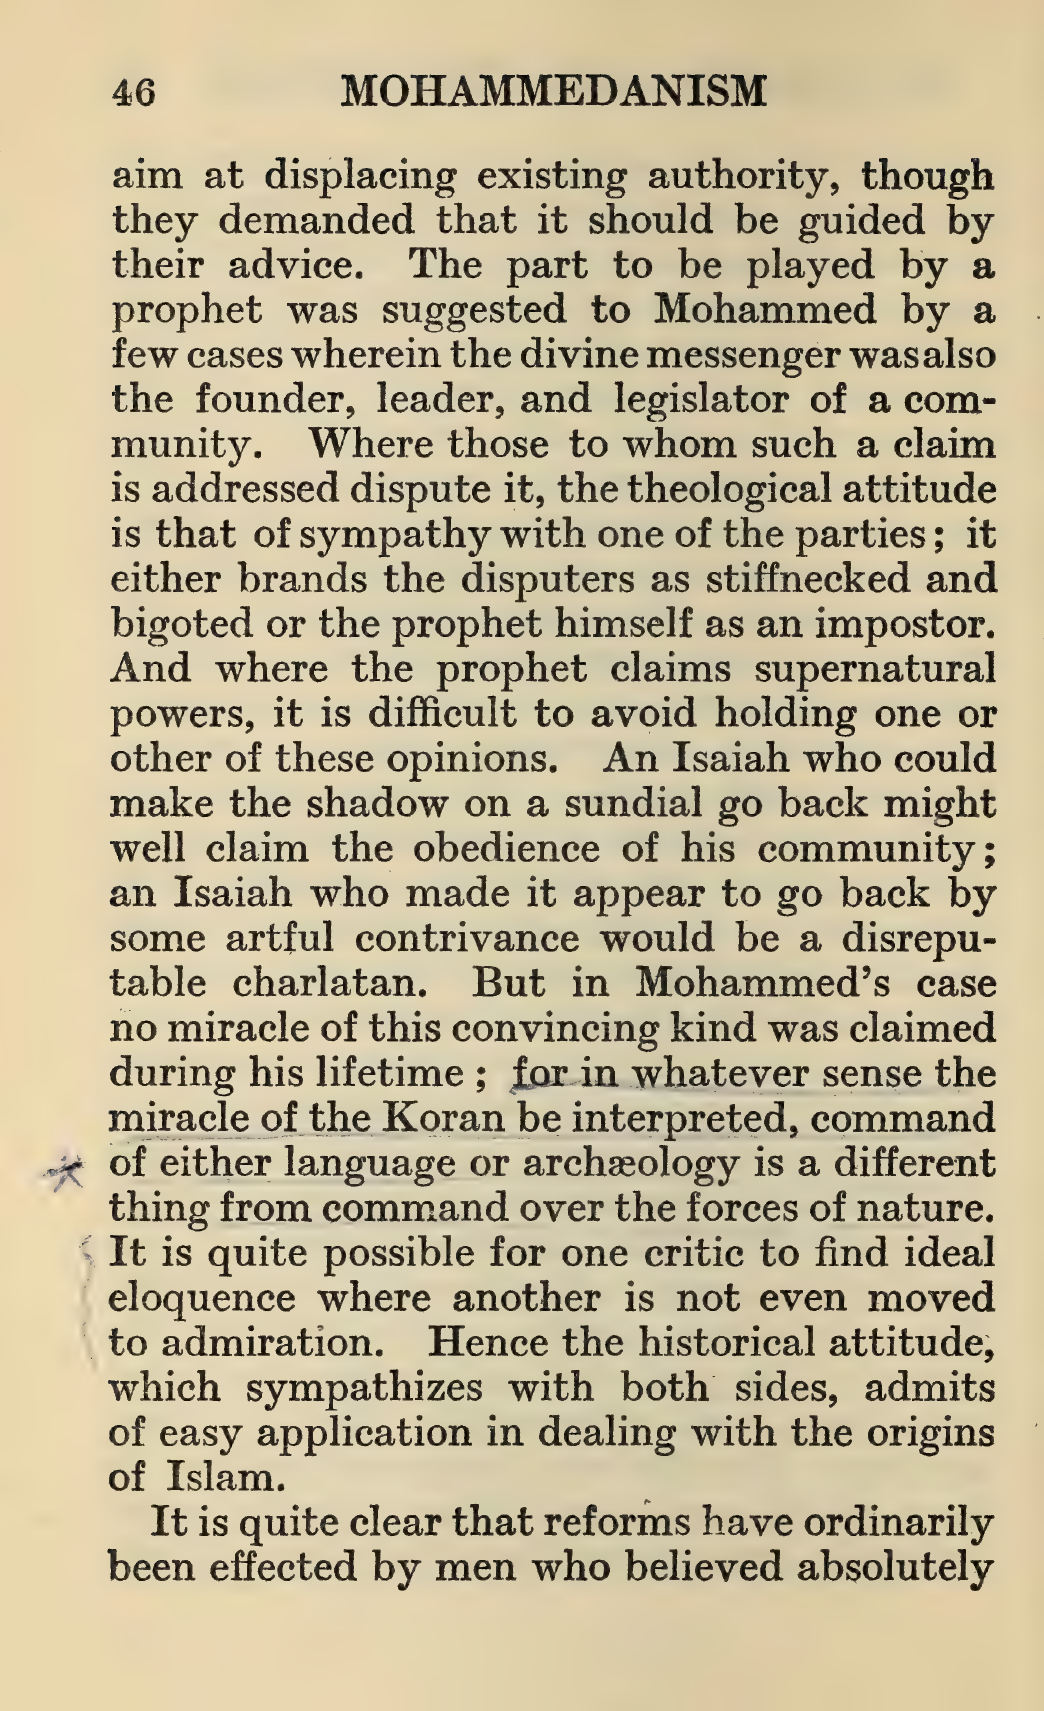 46 MOHAMMEDANISM
aim at displacing existing authority, though
they demanded that it should be guided by
their advice. The part to be played by a
prophet was suggested to Mohammed by a
few cases wherein the divine messenger was also
the founder, leader, and legislator of a com-
munity. Where those to whom such a claim
is addressed dispute it, the theological attitude
is that of sympathy with one of the parties; it
either brands the disputers as stiffnecked and
bigoted or the prophet himself as an impostor.
And where the prophet claims supernatural
powers, it is difficult to avoid holding one or
other of these opinions. An Isaiah who could
make the shadow on a sundial go back might
well claim the obedience of his community;
an Isaiah who made it appear to go back by
some artful contrivance would be a disrepu-
table charlatan. But in Mohammed's case
no miracle of this convincing kind was claimed
during his lifetime; for in whatever sense the
miracle of the Koran be interpreted, command
of either language or archæology is a different
thing from command over the forces of nature.
It is quite possible for one critic to find ideal
eloquence where another is not even moved
to admiration. Hence the historical attitude,
which sympathizes with both sides, admits
of easy application in dealing with the origins
of Islam.
It is quite clear that reforms have ordinarily
been effected by men who believed absolutely